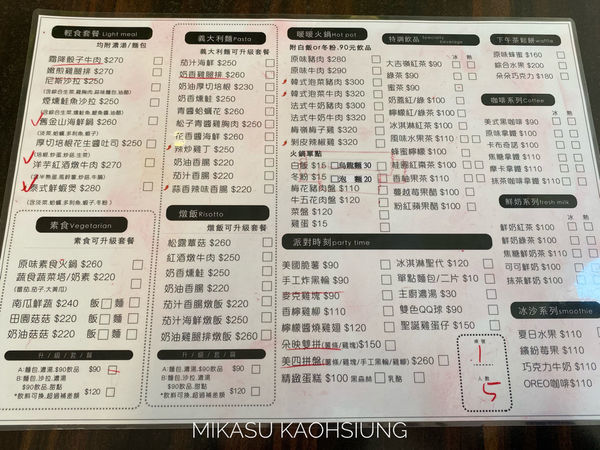 輕食套餐 Light meal
均附濃湯/麵包
霜降骰子牛肉 $270
嫩煎雞腿排 $260
尼斯沙拉 $250
煙燻鮭魚沙拉 $250
舊金山海鮮鍋 $260
厚切培根花生醬吐司 $250
洋芋紅酒燉牛肉 $270
泰式鮮蝦煲 $280
素食Vegetarian
素食可升級套餐
原味素食火鍋 $260
蔬食蔬菜塔/奶素 $220
(蕃茄,茄子,大黃瓜)
南瓜鮮蔬 $240 飯 麵
田園菇菇 $210 飯 麵
奶油菇菇 $220 飯 麵
升/級/套/餐
A:麵包,濃湯,$90飲品 $90
B:麵包,沙拉,濃湯,
$90飲品,甜點 $120
*飲料可換,超過補差額
義大利麵Pasta
義大利麵可升級套餐
茄汁海鮮 $250
奶香雞腿排 $260
奶油厚切培根 $230
奶香燻鮭 $250
青醬蛤蠣花 $210
松子青醬雞胸肉 $250
花香醬海鮮 $260
辣炒雞丁 $250
奶油香腸 $220
茄汁香腸 $220
蒜香辣味香腸 $220
燉飯Risotto
燉飯可升級套餐
松露蕈菇 $260
紅酒燉牛肉 $260
奶香燻鮭 $250
奶油香腸 $220
茄汁香腸燉飯 $220
茄汁海鮮燉飯 $250
奶油雞腿排燉飯 $260
升/級/套/餐
A:麵包,濃湯,$90飲品 $90
B:麵包,沙拉,濃湯,
$90飲品,甜點 $120
*飲料可換,超過補差額
暖暖火鍋Hot pot
附白飯or冬粉.90元飲品
原味豬肉 $280
原味牛肉 $290
韓式泡菜豬肉 $320
韓式泡菜牛肉 $320
法式牛奶豬肉 $320
法式牛奶牛肉 $320
梅嶺梅子雞 $320
剝皮辣椒雞 $320
火鍋單點
白飯 $15 烏龍麵 30
冬粉 $15 泡麵 20
梅花豬肉盤 $110
牛五花肉盤 $120
菜盤 $120
雞蛋 $15
特調飲品 Specialty beverage
冰 熱
大吉嶺紅茶 $90
綠茶 $90
蜜茶 $90
奶蓋紅/綠 $110
檸檬紅/綠茶 $110
冰淇淋紅茶 $110
風味水果茶 $110
蜂蜜檸檬 $110
桂圓紅棗茶 $100
香柚果茶 $110
蔓越莓果醋 $100
粉紅蘋果醋 $100
下午茶鬆餅waffle
原味蜂蜜 $160
綜合水果 $200
朵朵巧克力 $180
咖啡系列Coffee
冰 熱
美式黑咖啡 $90
原味拿鐵 $110
卡布奇諾 $110
焦糖拿鐵 $110
摩卡拿鐵 $110
抹茶咖啡拿鐵 $110
鮮奶系列fresh milk
冰 熱
鮮奶紅茶 $100
鮮奶綠茶 $100
焦糖鮮奶 $100
可可鮮奶 $100
抹茶鮮奶 $100
冰沙系列smoothie
夏日水果 $110
繽紛莓果 $110
巧克力牛奶 $110
OREO咖啡$110
派對時刻party time
美國脆薯 $90
手工炸黑輪 $90
麥克雞塊 $90
香檸雞柳 $110
檸檬醬燒雞翅 $120
朵映雙拼(薯條/雞塊)$150
美四拼盤(薯條/雞塊/手工黑輪/雞柳) $260
精緻蛋糕 $100 黑森林 乳酪
冰淇淋聖代 $120
單點麵包/二片 $10
主廚濃湯 $30
雙色QQ球 $90
聖誕雞仔子 $150
桌號
1
人數
5
MIKASU KAOHSIUNG